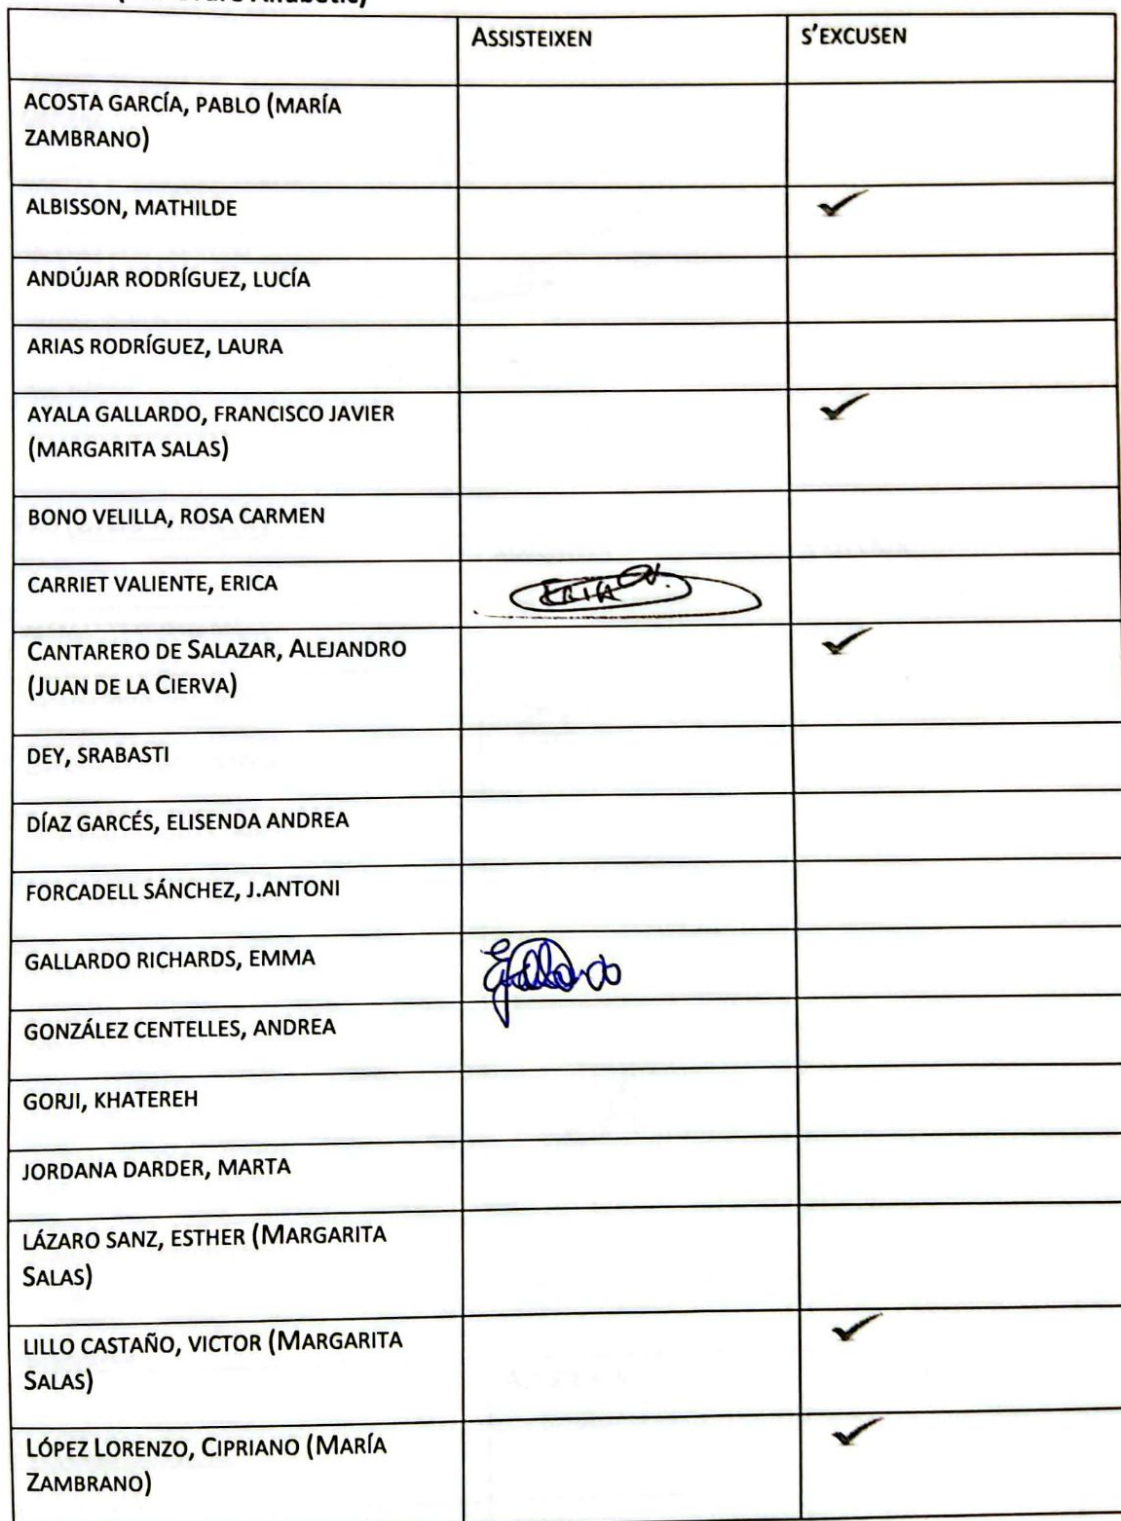 ASSISTEIXEN S'EXCUSEN
ACOSTA GARCÍA, PABLO (MARÍA
ZAMBRANO)
ALBISSON, MATHILDE ✓
ANDÚJAR RODRÍGUEZ, LUCÍA
ARIAS RODRÍGUEZ, LAURA
AYALA GALLARDO, FRANCISCO JAVIER ✓
(MARGARITA SALAS)
BONO VELILLA, ROSA CARMEN
CARRIET VALIENTE, ERICA
CANTARERO DE SALAZAR, ALEJANDRO ✓
(JUAN DE LA CIERVA)
DEY, SRABASTI
DÍAZ GARCÉS, ELISENDA ANDREA
FORCADELL SÁNCHEZ, J.ANTONI
GALLARDO RICHARDS, EMMA EGallardo
GONZÁLEZ CENTELLES, ANDREA
GORJI, KHATEREH
JORDANA DARDER, MARTA
LÁZARO SANZ, ESTHER (MARGARITA
SALAS)
LILLO CASTAÑO, VICTOR (MARGARITA ✓
SALAS)
LÓPEZ LORENZO, CIPRIANO (MARÍA ✓
ZAMBRANO)